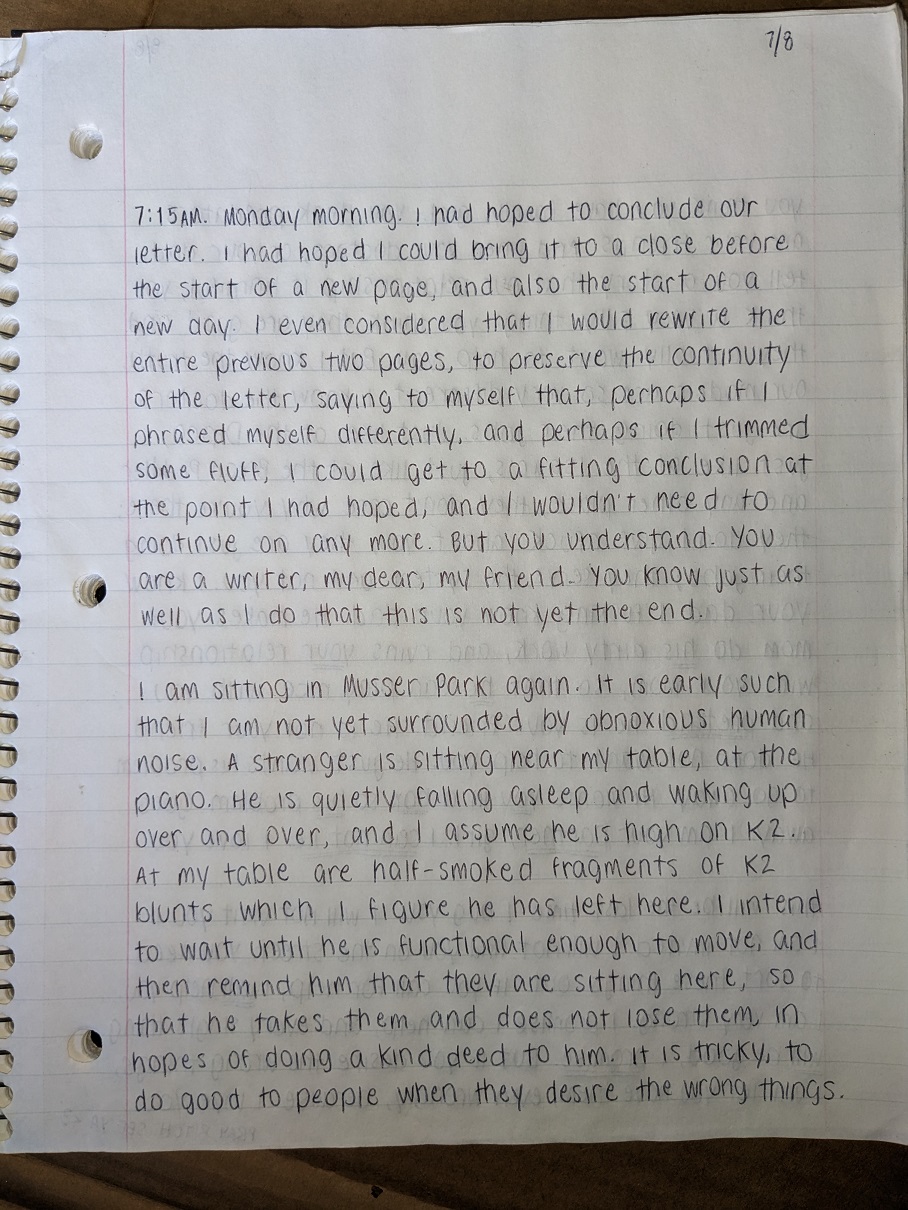 7/8
7:15AM. Monday morning. I had hoped to conclude our
letter. I had hoped I could bring it to a close before
the start of a new page, and also the start of a
new day. I even considered that I would rewrite the
entire previous two pages, to preserve the continuity
of the letter, saying to myself that, perhaps if I
phrased myself differently, and perhaps if I trimmed
some fluff, I could get to a fitting conclusion at
the point I had hoped, and I wouldn't need to
continue on any more. But you understand. You
are a writer, my dear, my friend. You know just as
well as I do that this is not yet the end.
I am sitting in Musser Park again. It is early such
that I am not yet surrounded by obnoxious human
noise. A stranger is sitting near my table, at the
piano. He is quietly falling asleep and waking up
over and over, and I assume he is high on K2.
At my table are half-smoked fragments of K2
blunts which I figure he has left here. I intend
to wait until he is functional enough to move, and
then remind him that they are sitting here, so
that he takes them and does not lose them, in
hopes of doing a kind deed to him. It is tricky, to
do good to people when they desire the wrong things.